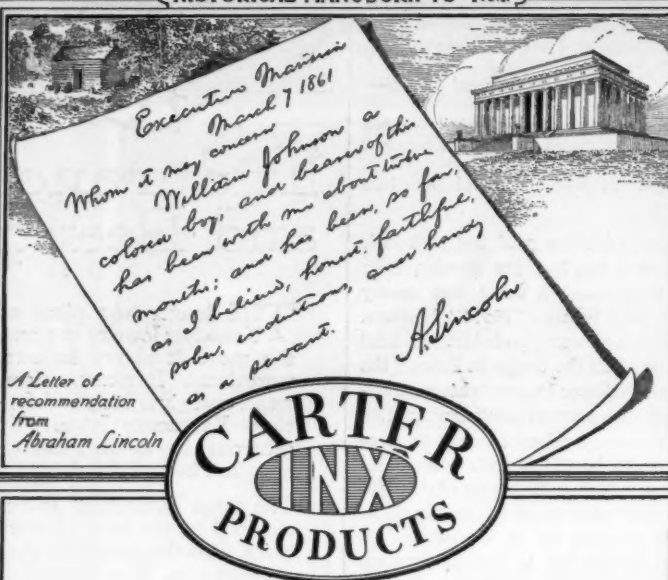 HISTORICAL MANUSCRIPTS
Executive Mansion
March 7 1861
Whom it may concern
William Johnson a
colored boy, and bearer of this
has been with me about twelve
months; and has been, so far,
as I believe, honest, faithful,
sober, industrious, and handy
as a servant.
A. Lincoln
A Letter of
recommendation
from
Abraham Lincoln
CARTER
INX
PRODUCTS